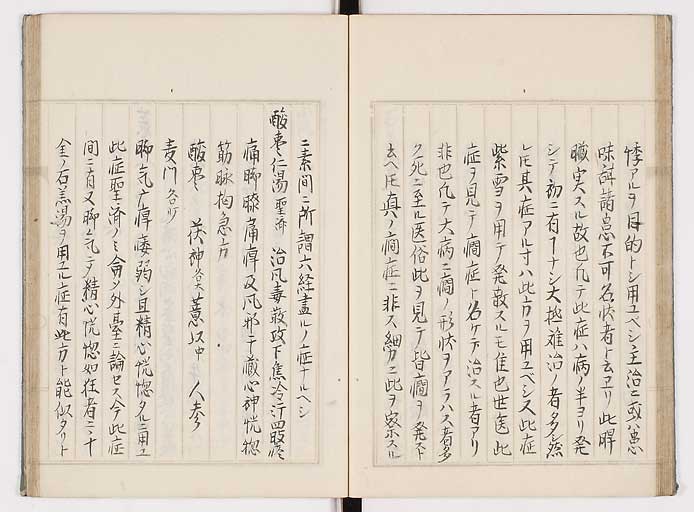 悸アルヲ目的トシ用ユベシ主治ニ或ハ喜忘
味諸患不可名状者ト云ヱリ此
職実スル故也凡テ此症ハ病ノ半ヨリ発
シテ初ニ有ナシ大抵難治ノ者多シ然
レ𪜈其症アル寸ハ此方ヲ用ユベシ又此症
紫雪ヲ用テ発スルモ佳也世医此
症ヲ見テ癇症ト名ケテ治スル者アリ
非也凡テ大病ニ癇ノ形状ヲアラハス者多
ク死ニ至ル医俗此ヲ見テ皆癇ヲ発スト
云ヘ𪜈真ノ癇症ニ非ス細カニ此ヲ察スル
ニ素問ニ所謂六経盡ルノ症ナルベシ
酸棗仁湯 聖済 治風毒攻下焦冷汗四肢疼
痛脚膝痛痺及風邪干蔵心神恍惚
筋脉拘急方
酸棗 茯神 各大 薏苡 中 人参
麦門 各少
脚気痿弱シ且精心恍惚タルニ用ユ
此症聖済ノミ論ク外臺ニ論セス今此症
間ニ有又脚気テ精心恍惚如狂者ニハ十
金ノ石羔湯ヲ用ユル症有此方ト能似タリト